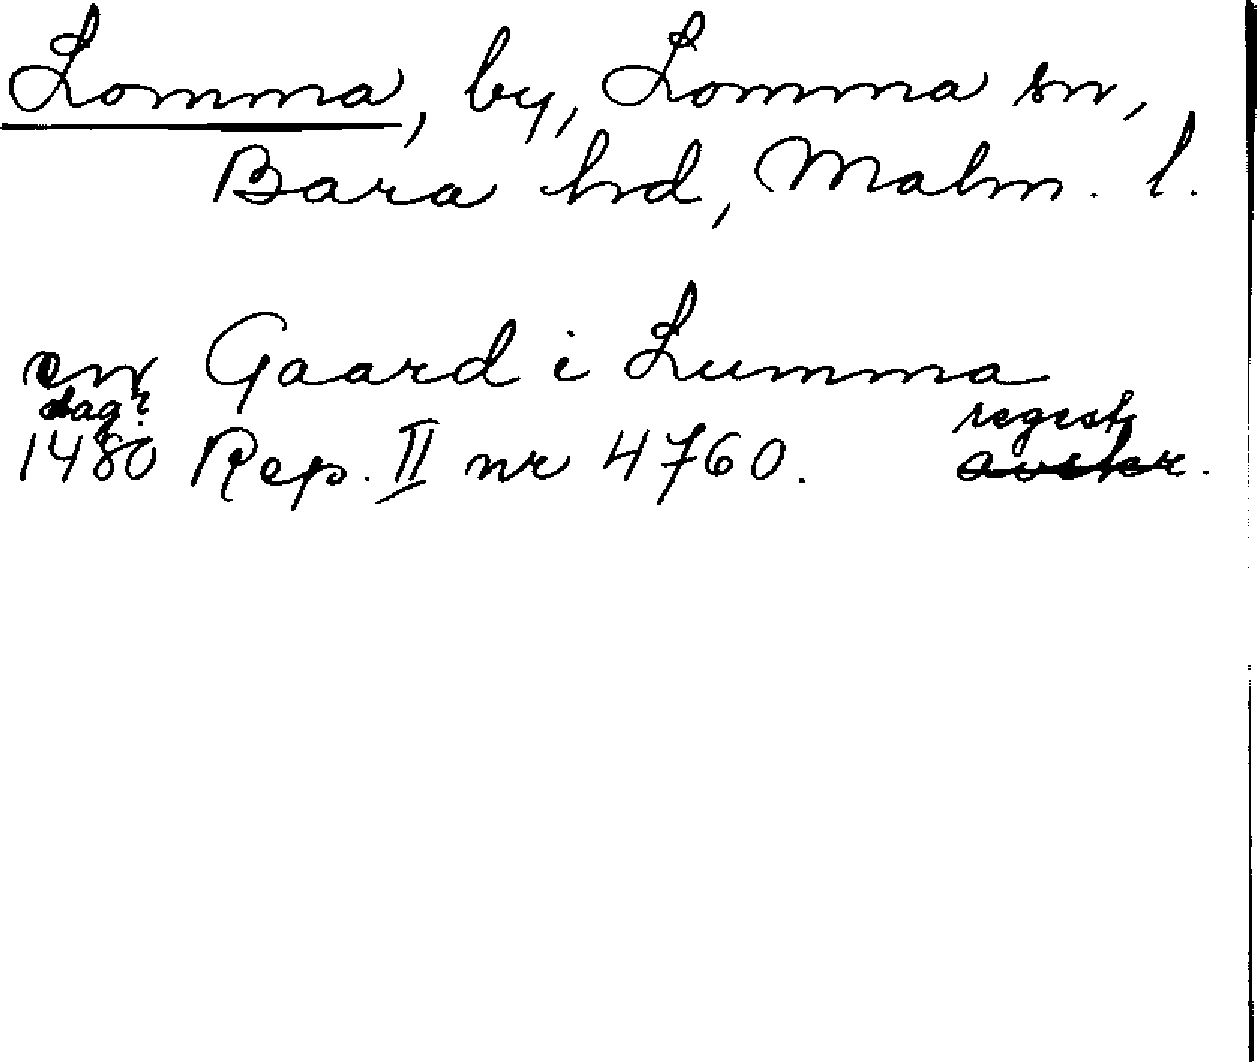 Lomma, by, Lomma sn,
Bara hd, Malm. l.
en Gaard i Lumma
dag?
regest
1480 Rep. II nr 4760. avskr.